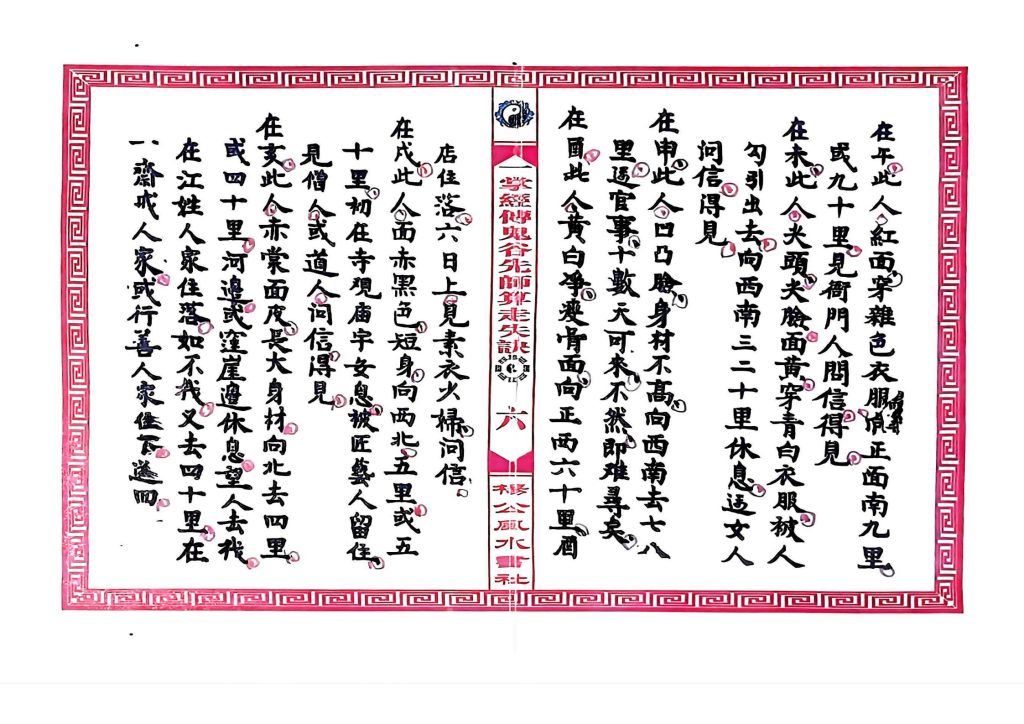 在午此人紅面穿雜色衣服 正面南九里
或九十里見衙門人問信得見
在未此人尖頭尖臉面黄穿青白衣服被人
勾引出去向西南三二十里休息适女人
问信得見
在申此人凹凸臉身材不高向西南去七八
里适官事十數天可來不然即难尋矣
在酉此人黄白净瘦骨面向正西六十里酒
一掌經傳鬼谷先師算走失訣
六
楊公風水書社
店住落六日上見素衣少婦问信
在戌此人面赤黑色短身向西北五里或五
十里初在寺观庙宇安息被匠藝人留住
見僧人或道人问信得見
在亥此人赤棠面皮長大身材向北去四里
或四十里河邉或窪崖邉休息望人去找
在江姓人家住落如不找又去四十里在
一齋戒人家或行善人家住下遂回